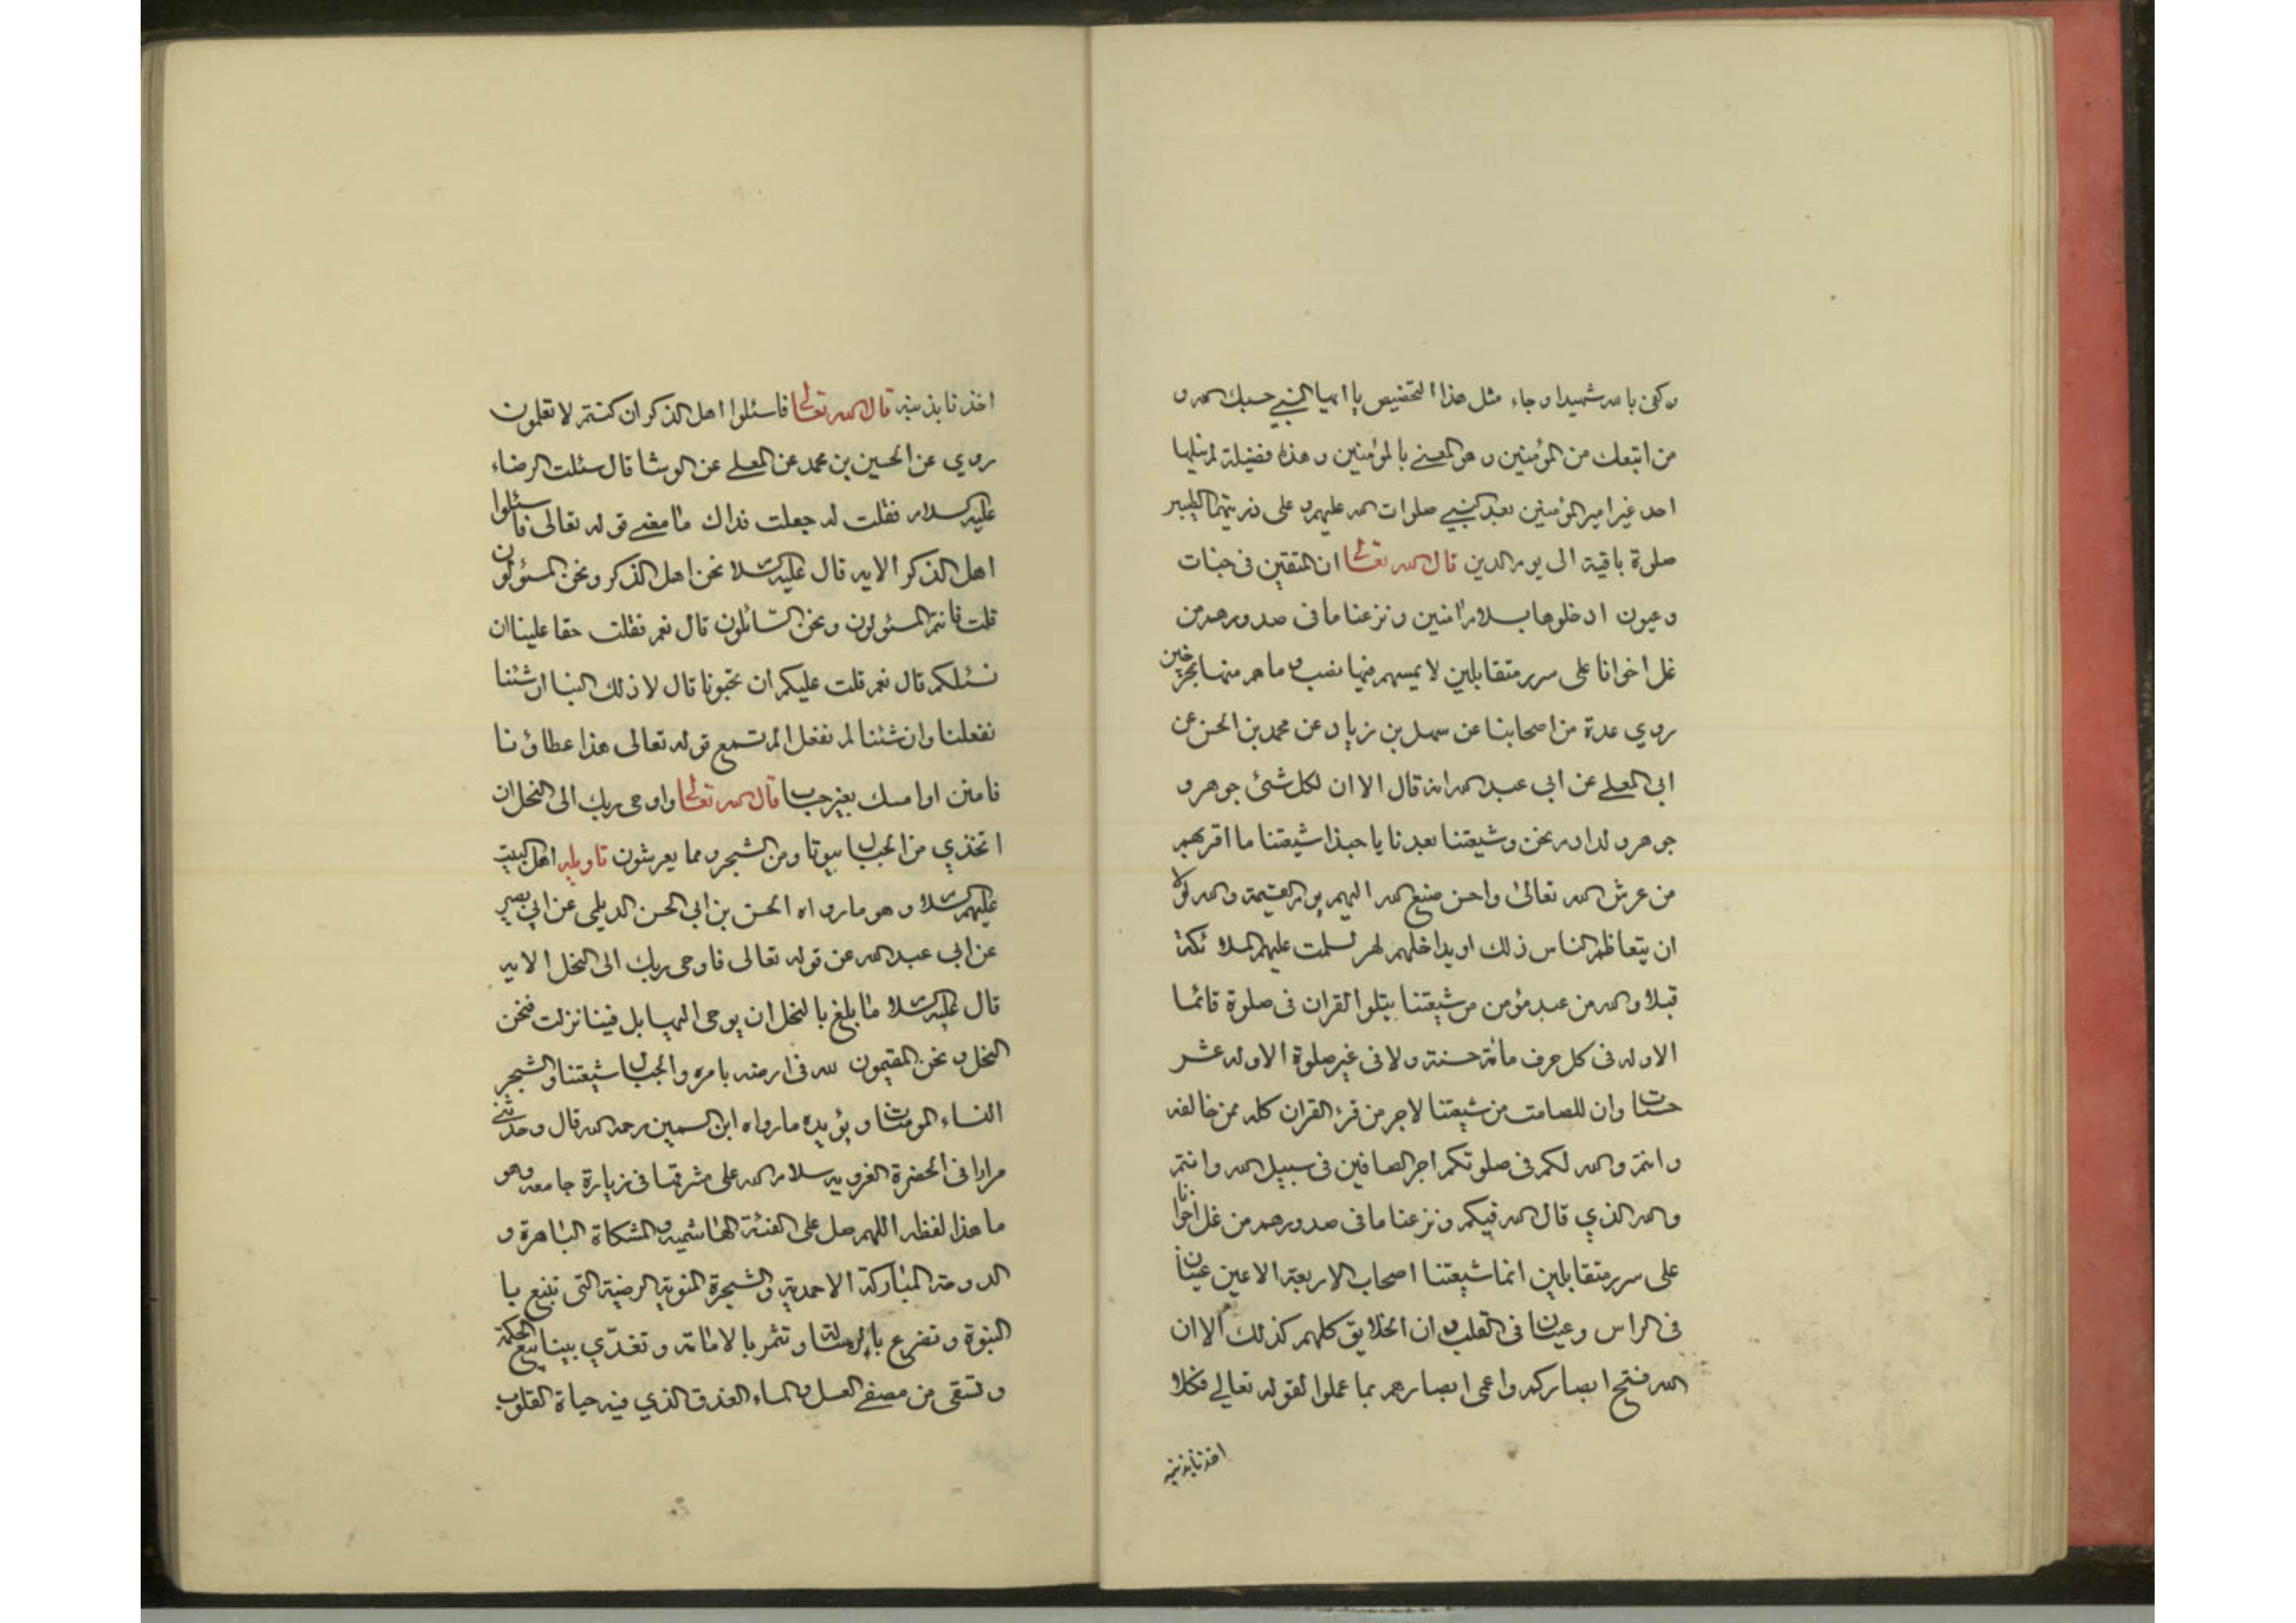 وكفى بالله شهيدا وجاء مثل هذا التخصيص يا ايها النبي حسبك الله و
من اتبعك من المؤمنين وهو المعنى بالمؤمنين وهذه فضيلة لم ينلها
احد غير امير المؤمنين بعد النبي صلوات الله عليهم وعلى ذريتهما الطيبين
صلوة باقية الى يوم الدين قال الله تعالى ان المتقين في جنات
وعيون ادخلوها بسلام امنين ونزعنا ما في صدورهم من
غل اخوانا على سرر متقابلين لا يمسهم فيها نصب وما هم منها بمخرجين
روي عدة من اصحابنا عن سهل بن زياد عن محمد بن الحسن عن
ابي المعلى عن ابي عبد الله انه قال الا ان لكل شئ جوهر و
جوهر ولد ادم نحن وشيعتنا بعدنا يا حبذا شيعتنا ما اقربهم
من عرش الله تعالى واحسن صنيع الله اليهم يوم القيمة والله لولا
ان يتعاظم الناس ذلك او يداخلهم لهم لسلمت عليهم الملائكة
قبلا والله من عبد مؤمن من شيعتنا يتلوا القران في صلوة قائما
الا وله في كل حرف مائة حسنة ولا في غير صلوة الا وله عشر
حسنات وان للصامت من شيعتنا لاجر من قرء القران كله ممن خالفه
وانتم والله لكم في صلوتكم اجر الصافين في سبيل الله وانتم
والله الذي قال الله فيكم ونزعنا ما في صدورهم من غل اخوانا
على سرر متقابلين انما شيعتنا اصحاب الاربعة الاعين عينان
في الراس وعينان في القلب وان الخلايق كلهم كذلك الا ان
الله فتح ابصاركم واعمى ابصارهم بما عملوا لقوله تعالى فكلا
اخذنا بذنبه
اخذنا بذنبه قال الله تعالى فاسئلوا اهل الذكر ان كنتم لا تعلمون
روي عن الحسين بن محمد عن المعلى عن الوشا قال سئلت الرضاء
عليه السلام فقلت له جعلت فداك ما معنى قوله تعالى فاسئلوا
اهل الذكر الايه قال عليه السلام نحن اهل الذكر ونحن المسئولون
قلت فانتم المسئولون ونحن السائلون قال نعم فقلت حقا علينا ان
نسئلكم قال نعم قلت عليكم ان تجبونا قال لا ذلك الينا ان شئنا
نفعلنا وان شئنا لم نفعل الم تسمع قوله تعالى هذا عطاؤنا
فامنن او امسك بغير حساب قال الله تعالى واوحى ربك الى النحل ان
اتخذي من الجبال بيوتا ومن الشجر ومما يعرشون تاويله اهل البيت
عليهم السلام وهو ما رواه الحسن بن ابي الحسن الديلمى عن ابي بصير
عن ابي عبد الله عن قوله تعالى فاوحى ربك الى النحل الايه
قال عليه السلام ما بلغ بالنحل ان يوحى اليها بل فينا نزلت فنحن
النحل ونحن المقيمون لله في ارضه بامره والجبال شيعتنا والشجر
النساء المومنات ويؤيده ما رواه ابن السمين رحمه الله قال وحدثني
مرارا في الحضرة الغرويه سلام الله على مشرفها في زيارة جامعه وهو
ما هذا لفظه اللهم صل على الفئة الهاشميه والمشكاة الباهرة و
الدوحة المباركة الاحمدية والشجرة المنوية الرضية التى تنبع با
النبوة وتضرع بالرسالة وتثمر بالامامة وتغذي بينابيع الحكمة
وتسقى من مصفى العسل والماء الغدق الذي فيه حياة القلوب